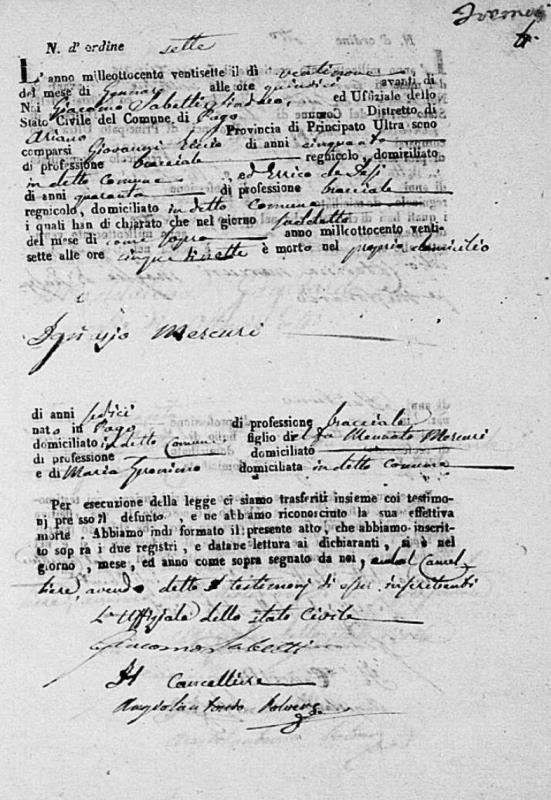 N. d'ordine sette
L'anno milleottocento ventisette il dì ventinove
del mese di Gennaro alle ore quindici avanti di
Noi Giacomo Sabetti Sindaco, ed Uffiziale dello
Stato Civile del Comune di Pago Distretto di
Ariano Provincia di Principato Ultra sono
comparsi Giovanni di anni cinquanta
di professione bracciale regnicolo, domiciliato
in detto Comune, ed Errico de
di anni quaranta di professione bracciale
regnicolo, domiciliato in detto Comune
i quali han dichiarato che nel giorno suddetto
del mese di come sopra anno milleottocento venti-
sette alle ore cinque è morto nel proprio domicilio
Ignazio Mercuri
di anni sedici di professione bracciale
nato in Pago figlio del fu Mennato Mercuri
domiciliato in detto Comune domiciliato
di professione domiciliata in detto Comune
e di Maria
Per esecuzione della legge ci siamo trasferiti insieme coi testimo-
nj presso il defunto, e ne abbiamo riconosciuto la sua effettiva
morte. Abbiamo indi formato il presente atto, che abbiamo inscrit-
to sopra i due registri, e datane lettura ai dichiaranti, si è nel
giorno, mese, ed anno come sopra segnato da noi, e dal Cancel-
liere, avendo detto i testimonj di esser inscribenti
L'Uffiziale dello stato Civile
Giacomo Sabetti
Il Cancelliere